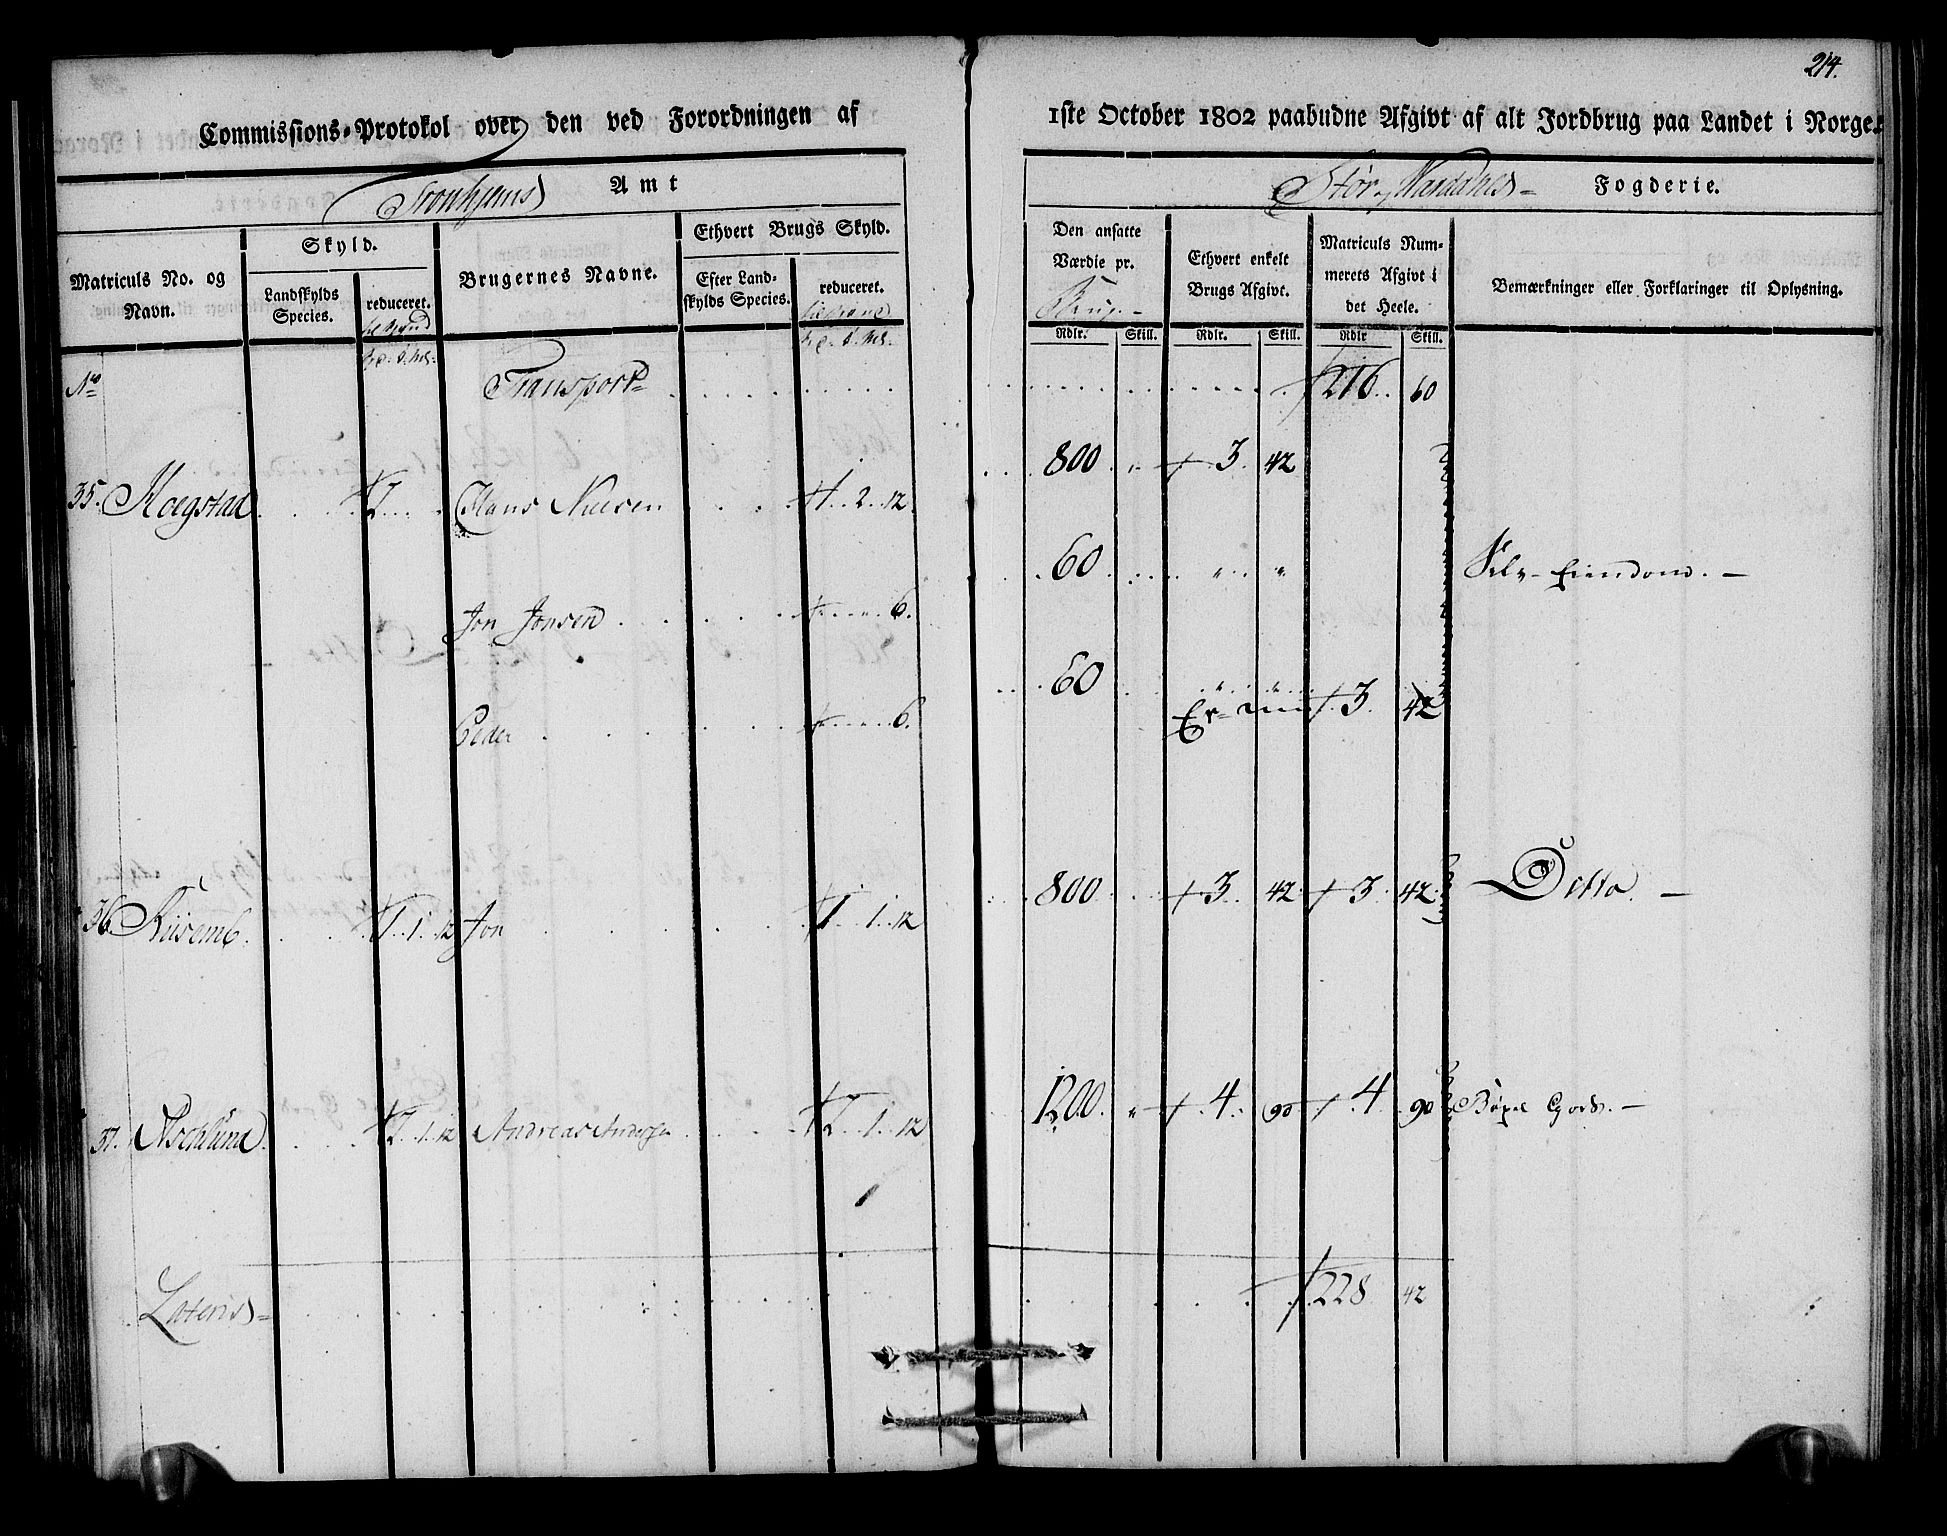 214.
Commissions-Protokol over den ved Forordningen af 1ste October 1802 paabudne Afgivt af alt Jordbrug paa Landet i Norge.
Tronhjems Amt
Stør- Fogderie.
Matriculs No. og Navn.
Skyld.
Landskylds Species.
reduceret.
Brugernes Navne.
Ethvert Brugs Skyld.
Efter Landskylds Species.
reduceret.
Den ansatte Værdie pr. Brug-
Ethvert enkelt Brugs Afgivt.
Matriculs Nummerets Afgivt i det Heele.
Bemærkninger eller Forklaringer til Oplysning.
Rdlr. Skill. Rdlr. Skill. Rdlr Skill.
No Transport 216 60
35. Moegstad 2 Hans Nielsen 1 . 2 . 12 800 3 42
Jon Jonsen 6. 60 Selv-Eiendom.
Peder 6. 60 3 42
36. 1 . 1 . 12 Jon 1 . 1 . 12 800 3 42 3 42 Ditto
37. Aschlund 2 . 1 . 12 Andreas Andersen 2 . 1 . 12 1200 4 90 4 90 Gods.
Lateris 228 42